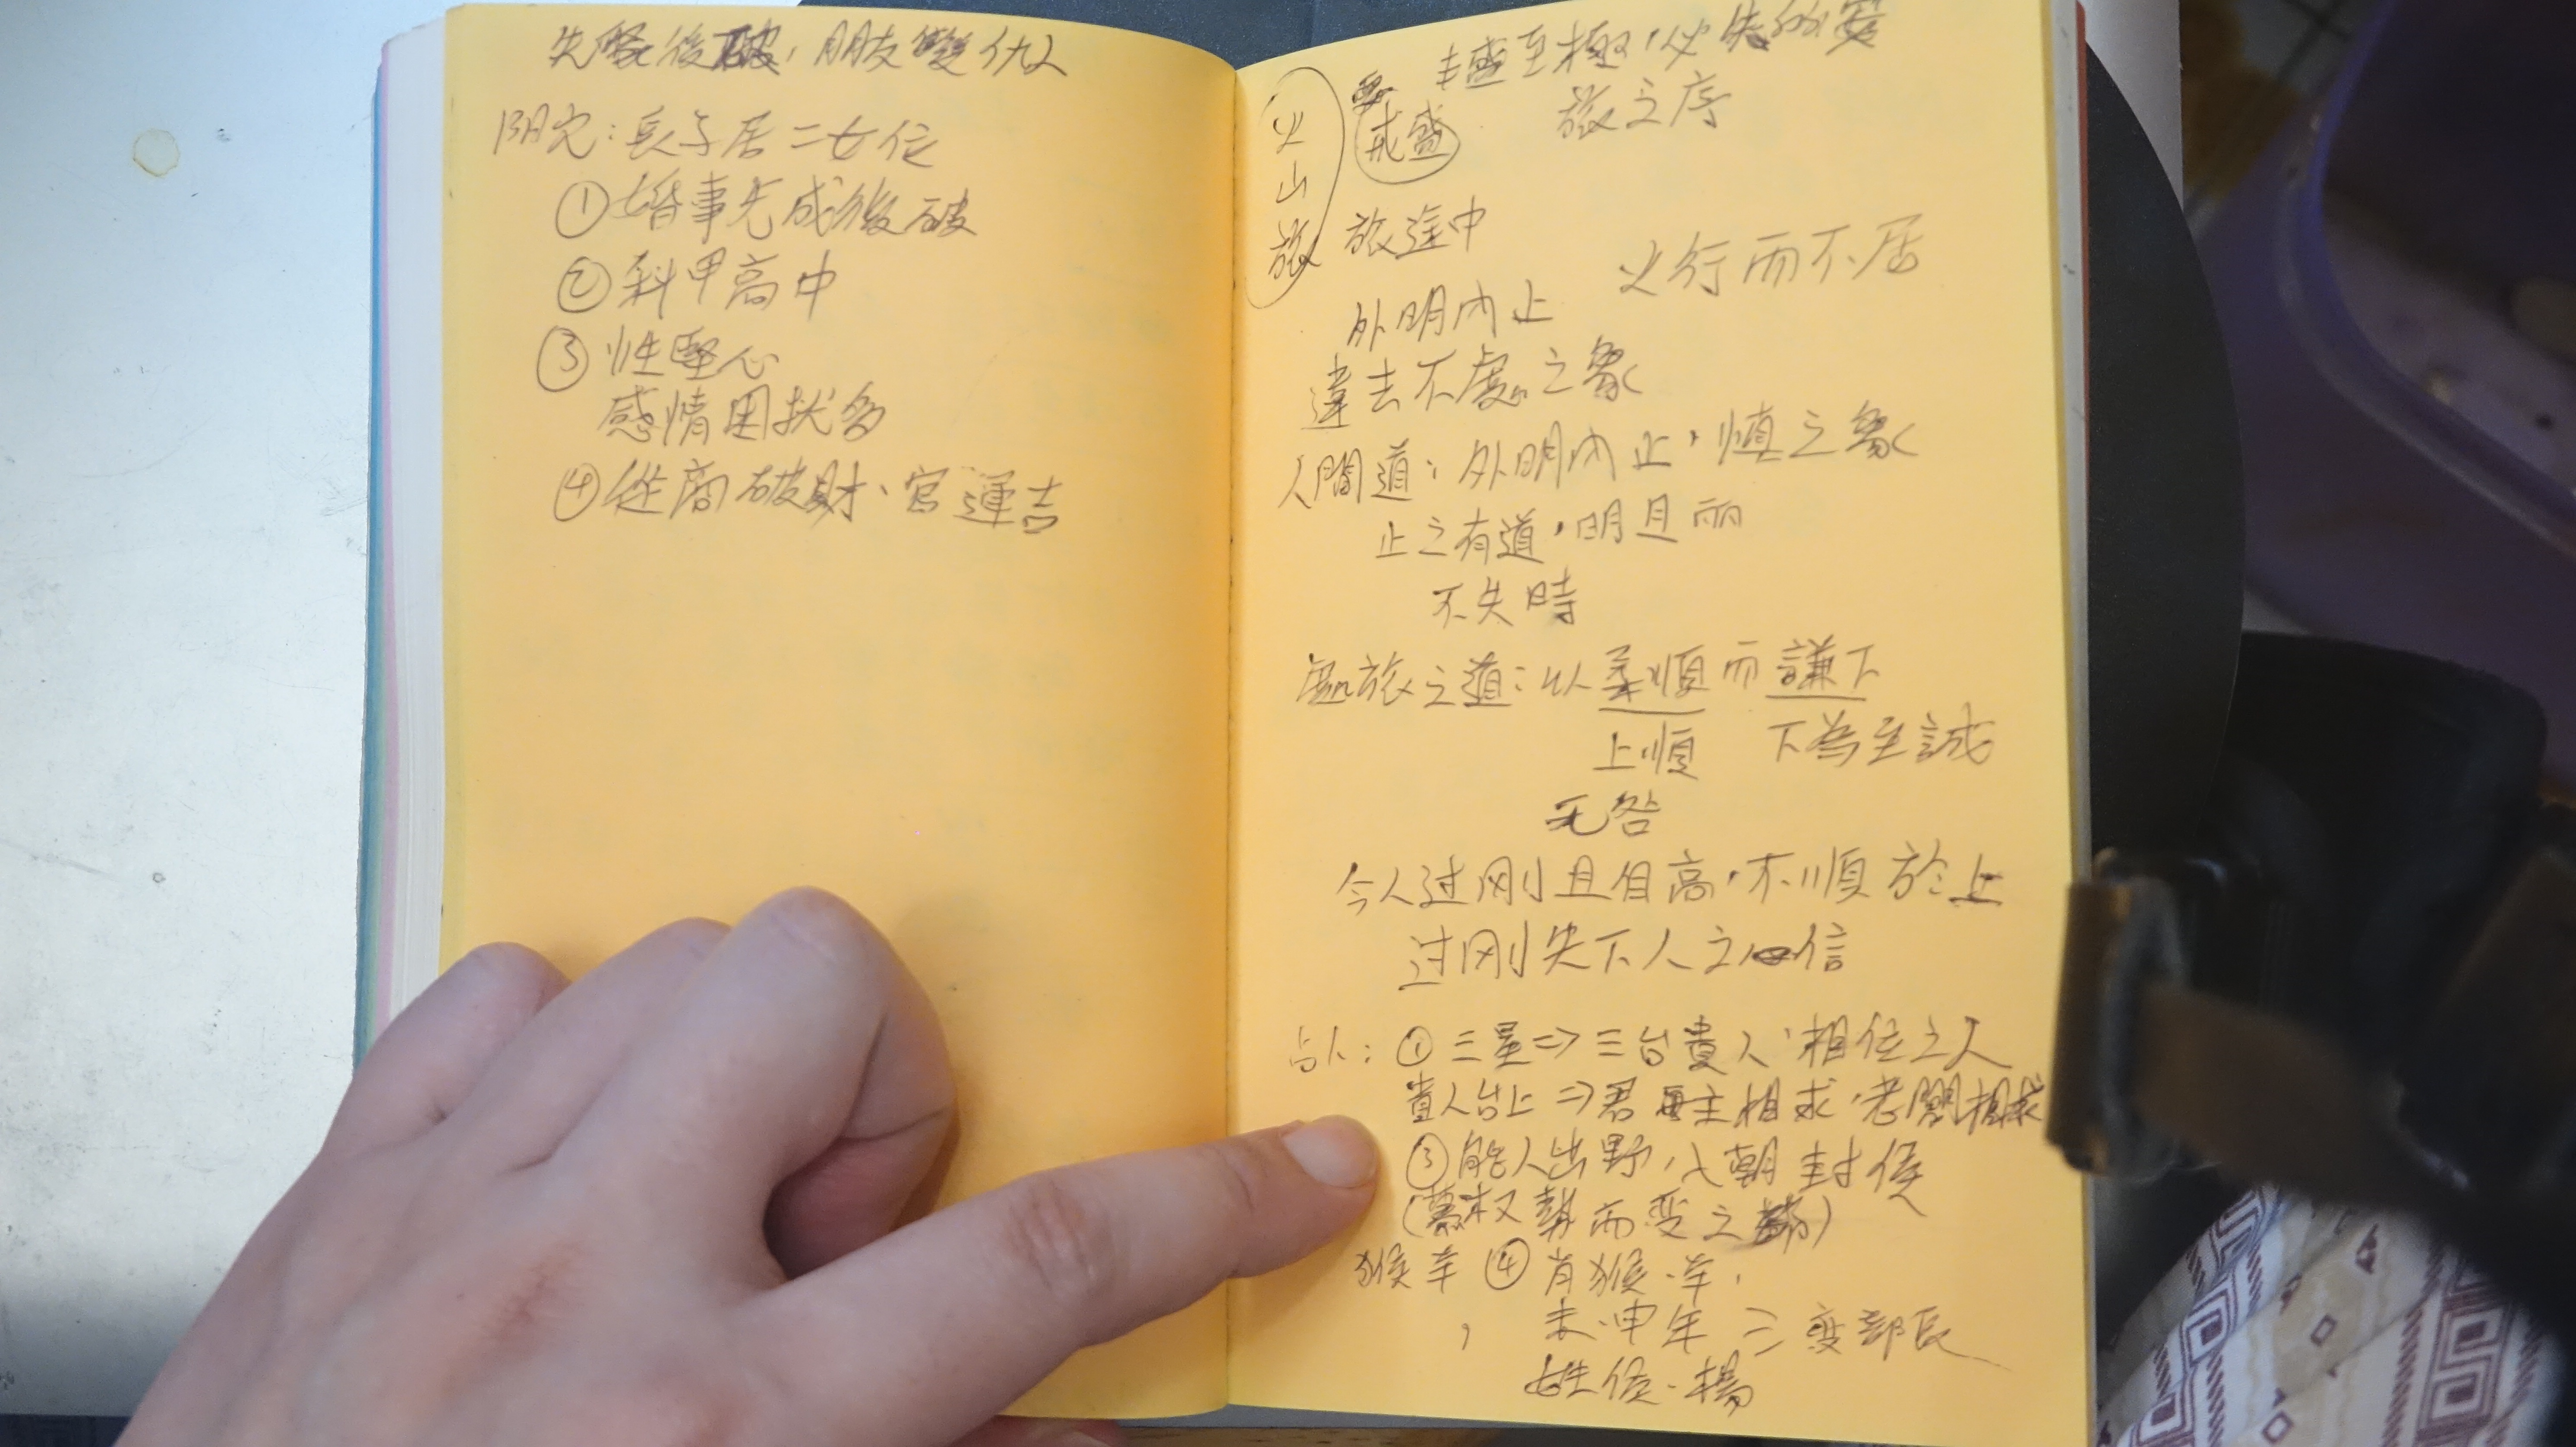 先緊後破，朋友變仇人
陰宅：長子居二女位
① 婚事先成後破
② 科甲高中
③ 性堅心
感情困擾多
④ 從商破財、官運吉
丰盛至極，必失所安
戒盛 旅之序
火山旅
旅途中
火行而不居
外明內止
違去不處之象
人間道：外明內止，慎之象
止之有道，明且丽
不失時
處旅之道：以柔順而謙下
上順 下為至誠
无咎
今人过刚且自高，不順於上
过刚失下人之信
占卜：① 三星⇒三台貴人、相位之人
貴人台上⇒君主相求，老闆相求
③ 能人出野，入朝封侯
(慕权勢而变之)
猴羊 ④ 肖猴、羊，
未、申年
姓侯、楊